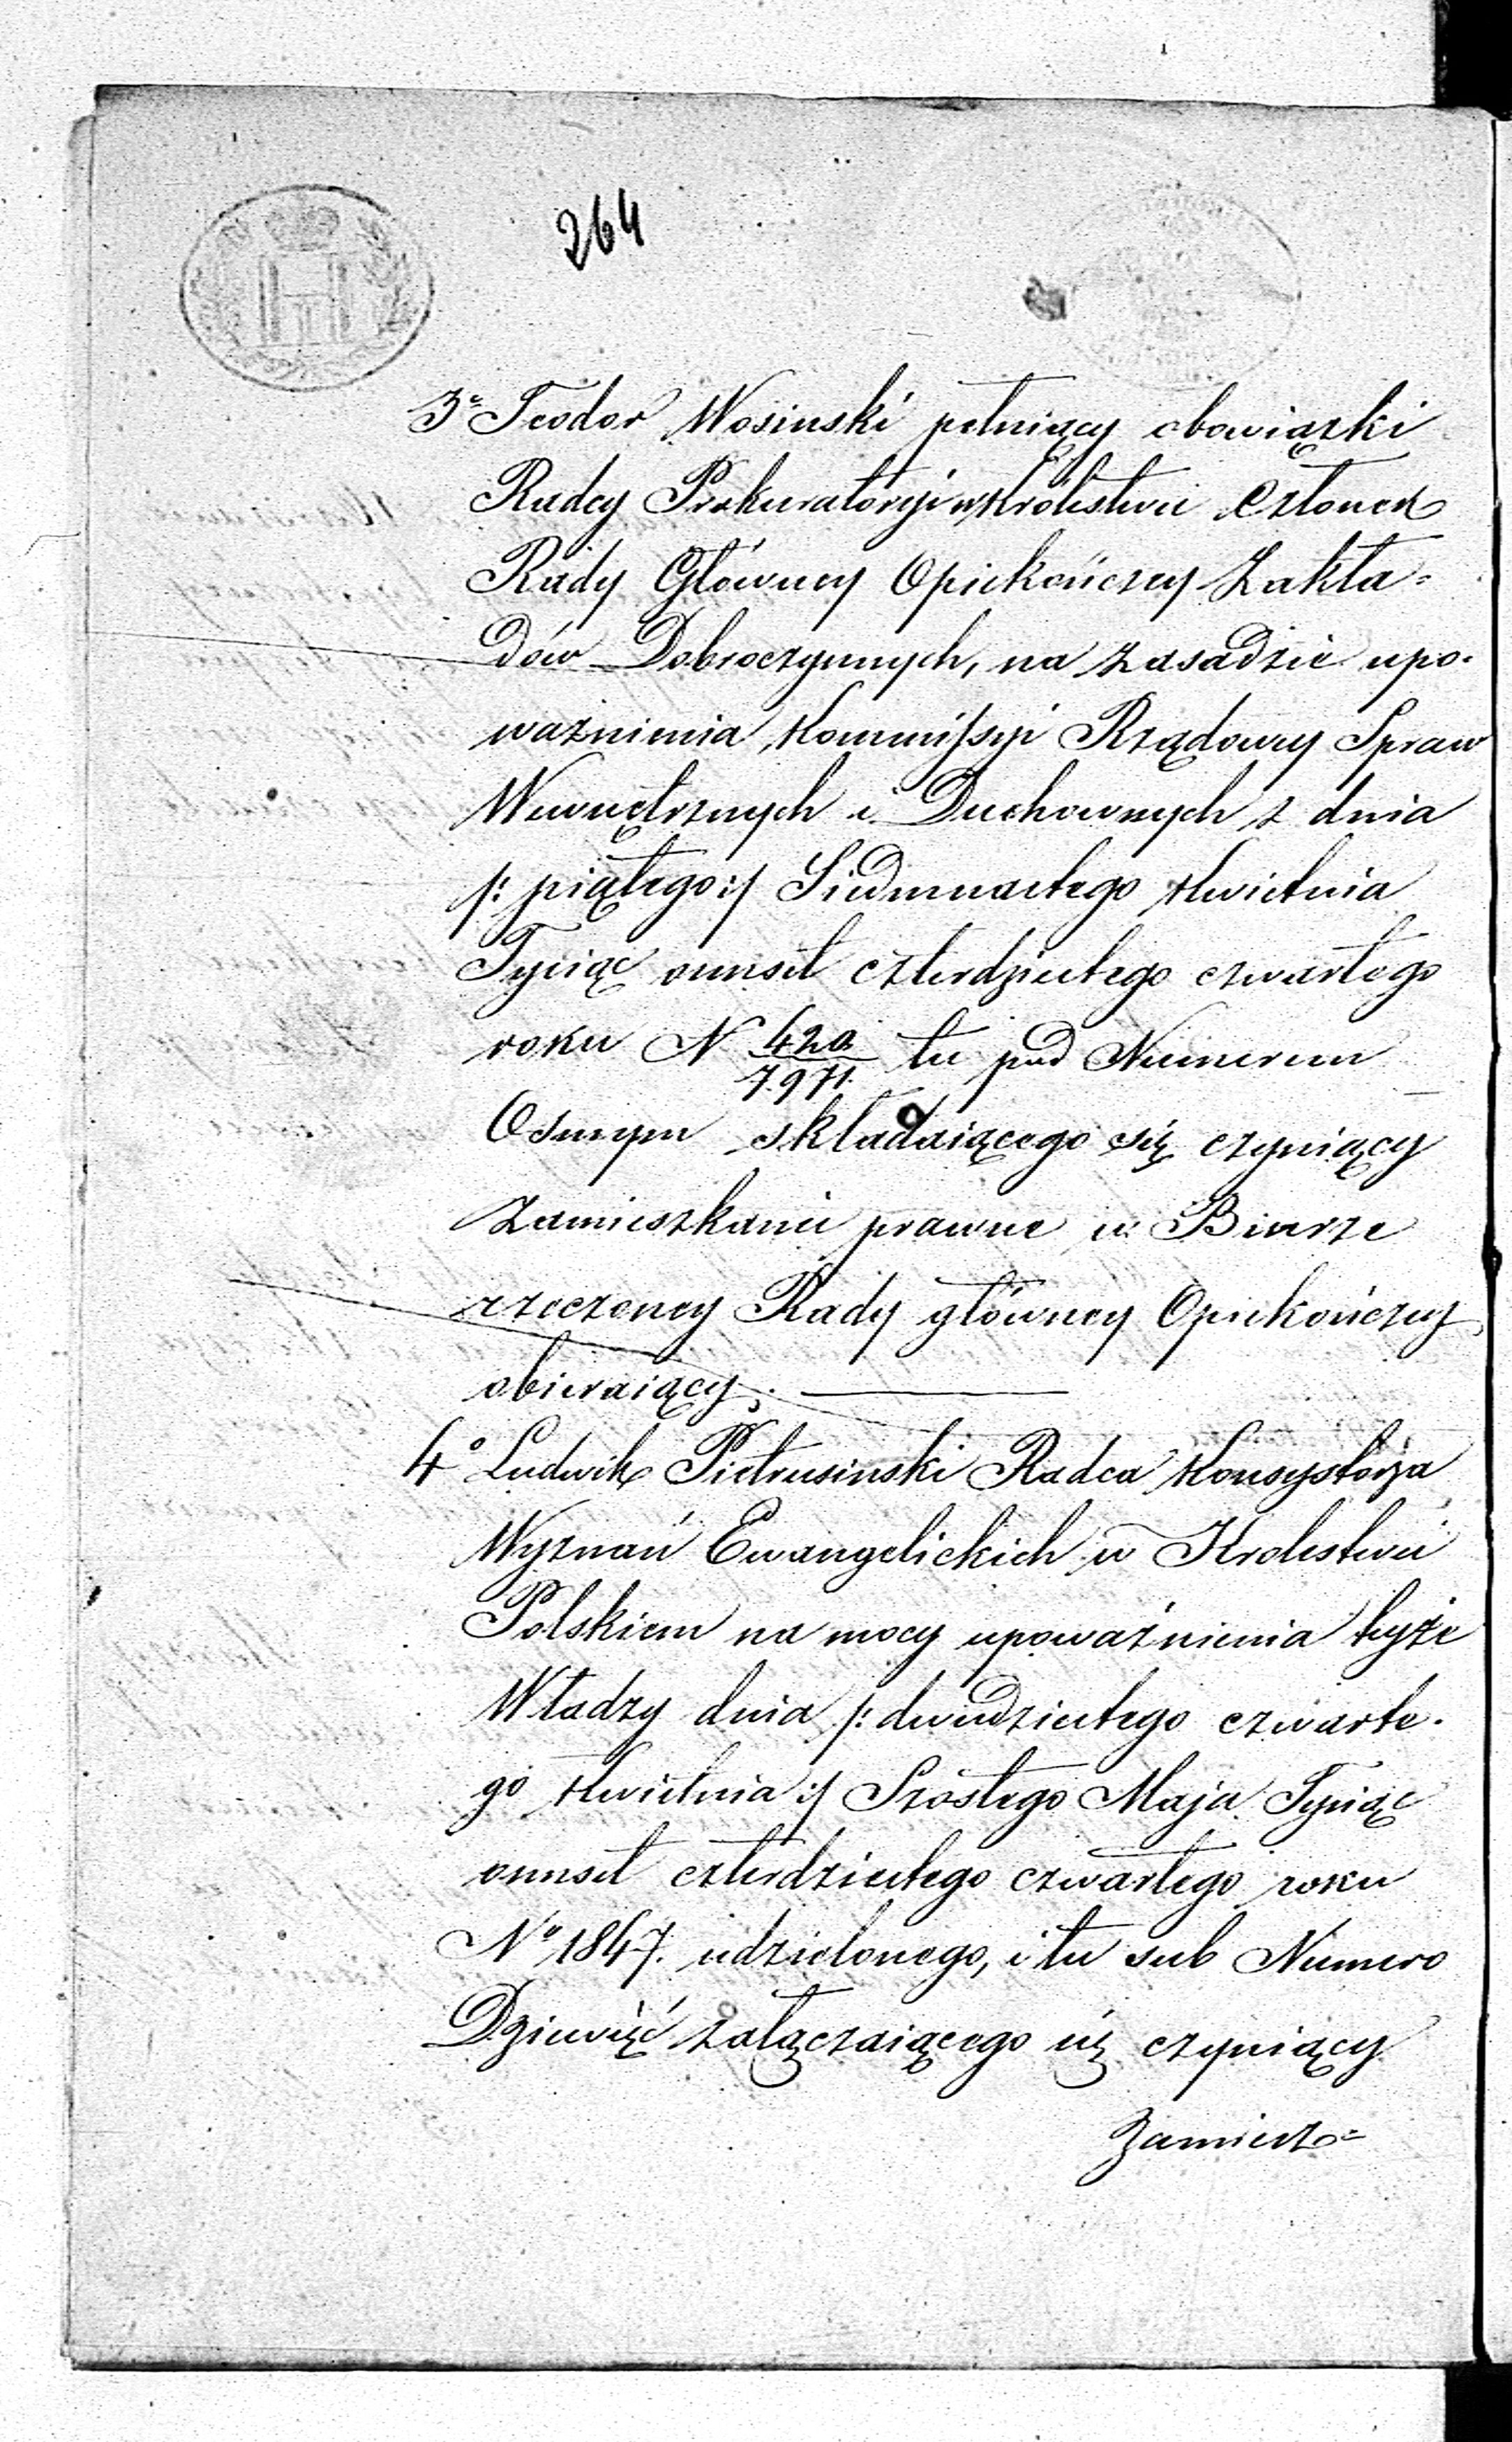 264
3º Teodor Wosinski pełniący obowiązki
Radcy Prokuratoryi w Królestwie Członek
Rady Główney Opiekończey Zakła=
dów Dobroczynnych, na zasadzie upo-
ważnienia Kommissyi Rządowey Spraw
Wewnętrznych i Duchownych z dnia
/: piątego :/ Siedmnastego Kwietnia
Tysiąc ośmset czterdziestego czwartego
roku N 420/7971. tu pod Numerem
Osmym składaiącego się czyniący
Zamieszkanie prawne w Biurze
rzeczoney Rady główney Opiekończey
obieraiący. —
4º Ludwik Pietrusinski Radca Konsystorza
Wyznań Ewangelickich w Krolestwie
Polskiem na mocy upoważnienia teyże
Władzy dnia /: dwudziestego czwarte-
go Kwietnia :/ Szóstego Maja Tysiąc
ośmset czterdziestego czwartego roku
Nº 1847. udzielonego, i tu sub Numero
Dziewięć załączaiącego się czyniący
Zamiesz=